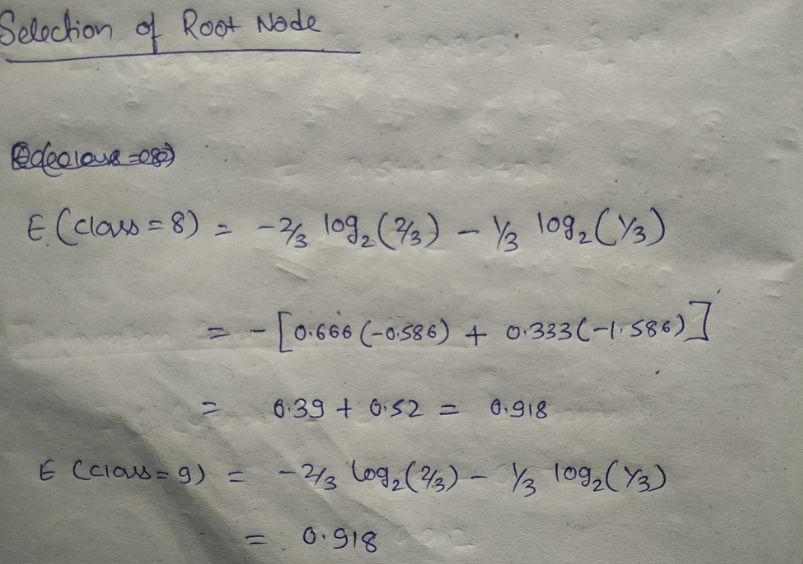 Selection of Root Node
E(class = 8) = -2/3 log₂(2/3) - 1/3 log₂(1/3)
= -[0.666(-0.586) + 0.333(-1.586)]
= 0.39 + 0.52 = 0.918
E(class = 9) = -2/3 log₂(2/3) - 1/3 log₂(1/3)
= 0.918